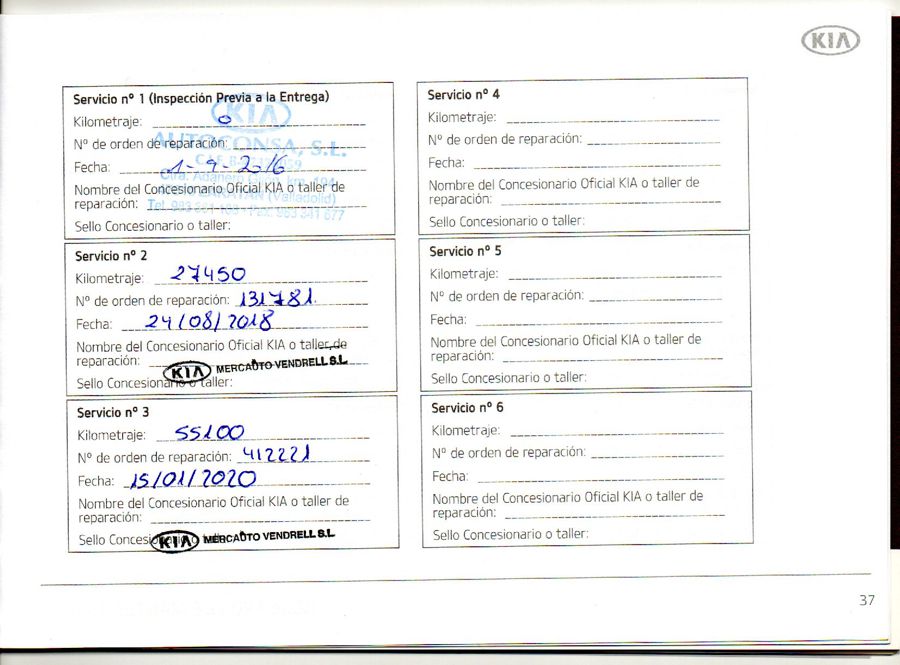 KIA
Servicio nº 1 (Inspección Previa a la Entrega)
KIA
Kilometraje: 0
Nº de orden de reparación:
AUTOCONSA, S.L.
Fecha: 1-9-2016
C.I.F.
Ctra. Adanero km. 194
Nombre del Concesionario Oficial KIA o taller de
(Valladolid)
reparación:
Tel. 983 Fax. 983 341 677
Sello Concesionario o taller:
Servicio nº 2
Kilometraje: 27450
Nº de orden de reparación: 131781
Fecha: 24/08/2018
Nombre del Concesionario Oficial KIA o taller de
reparación:
KIA MERCAUTO VENDRELL S.L
Sello Concesionario o taller:
Servicio nº 3
Kilometraje: 55100
Nº de orden de reparación: 412221
Fecha: 15/01/2020
Nombre del Concesionario Oficial KIA o taller de
reparación:
Sello KIA MERCAUTO VENDRELL S.L
Servicio nº 4
Kilometraje:
Nº de orden de reparación:
Fecha:
Nombre del Concesionario Oficial KIA o taller de
reparación:
Sello Concesionario o taller:
Servicio nº 5
Kilometraje:
Nº de orden de reparación:
Fecha:
Nombre del Concesionario Oficial KIA o taller de
reparación:
Sello Concesionario o taller:
Servicio nº 6
Kilometraje:
Nº de orden de reparación:
Fecha:
Nombre del Concesionario Oficial KIA o taller de
reparación:
Sello Concesionario o taller:
37